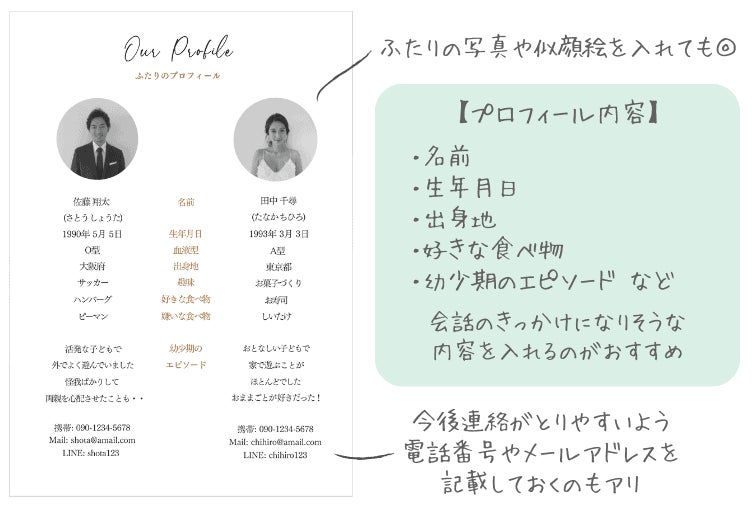 Our Profile
ふたりのプロフィール
佐藤 翔太 名前 田中 千尋
(さとうしょうた) (たなかちひろ)
1990年 5月 5日 生年月日 1993年 3月 3日
O型 血液型 A型
大阪府 出身地 東京都
サッカー 趣味 お菓子づくり
ハンバーグ 好きな食べ物 お寿司
ピーマン 嫌いな食べ物 しいたけ
活発な子どもで 幼少期の おとなしい子どもで
外でよく遊んでいました エピソード 家で遊ぶことが
怪我ばかりして ほとんどでした
両親を心配させたことも・・ おままごとが好きだった！
携帯: 090-1234-5678 携帯: 090-1234-5678
Mail: shota@amail.com Mail: chihiro@amail.com
LINE: shota123 LINE: chihiro123
ふたりの写真や似顔絵を入れても◎
【プロフィール内容】
・名前
・生年月日
・出身地
・好きな食べ物
・幼少期のエピソード など
会話のきっかけになりそうな
内容を入れるのがおすすめ
今後連絡がとりやすいよう
電話番号やメールアドレスを
記載しておくのもアリ